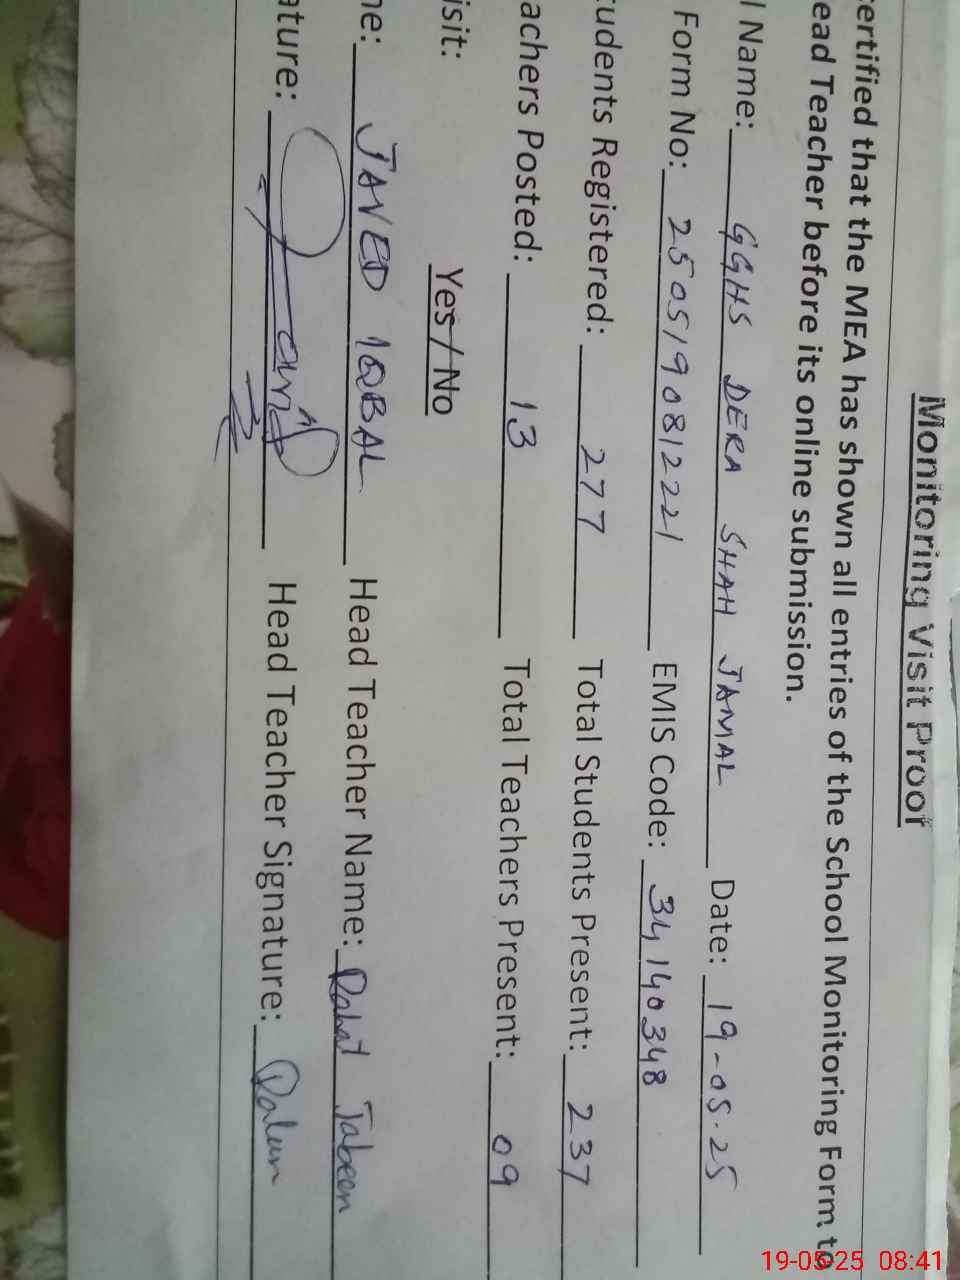 Monitoring Visit Proof
ertified that the MEA has shown all entries of the School Monitoring Form to
ead Teacher before its online submission.
l Name: GGHS DERA SHAH JAMAL Date: 19-05-25
Form No: 250519081221 EMIS Code: 34140348
tudents Registered: 277 Total Students Present: 237
achers Posted: 13 Total Teachers Present: 09
isit: Yes / No
ne: JAVED IQBAL Head Teacher Name: Rahat Jabeen
ature: Head Teacher Signature:
19-05-25 08:41